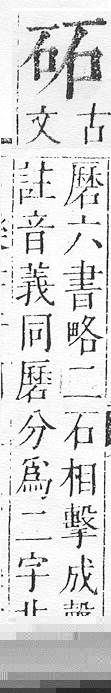 砳
古
文
磿六書略二石相擊成
註音義同磿分爲二字